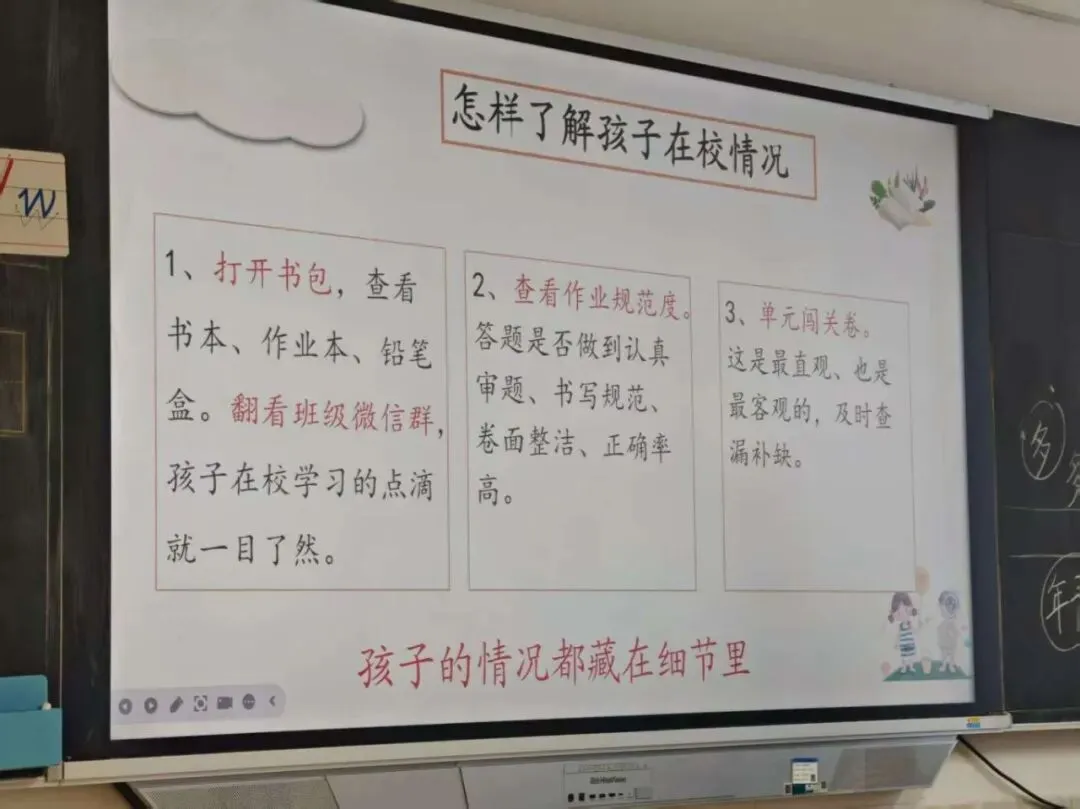 怎样了解孩子在校情况
1、打开书包，查看
书本、作业本、铅笔
盒。翻看班级微信群，
孩子在校学习的点滴
就一目了然。
2、查看作业规范度。
答题是否做到认真
审题、书写规范、
卷面整洁、正确率
高。
3、单元闯关卷。
这是最直观、也是
最客观的，及时查
漏补缺。
孩子的情况都藏在细节里
w
多